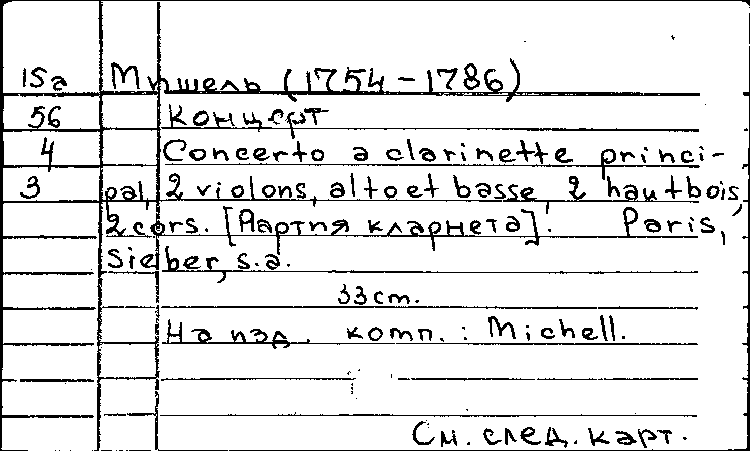 15а Мишель (1754-1786)
56 Концерт
4 Concerto a clarinette princi-
3 pal, 2 violons, alto et basse, 2 hautbois,
2 cors. [Партия кларнета]. Paris,
Sieber, s.a.
33 cm.
На изд. комп.: Michell.
См. след. карт.